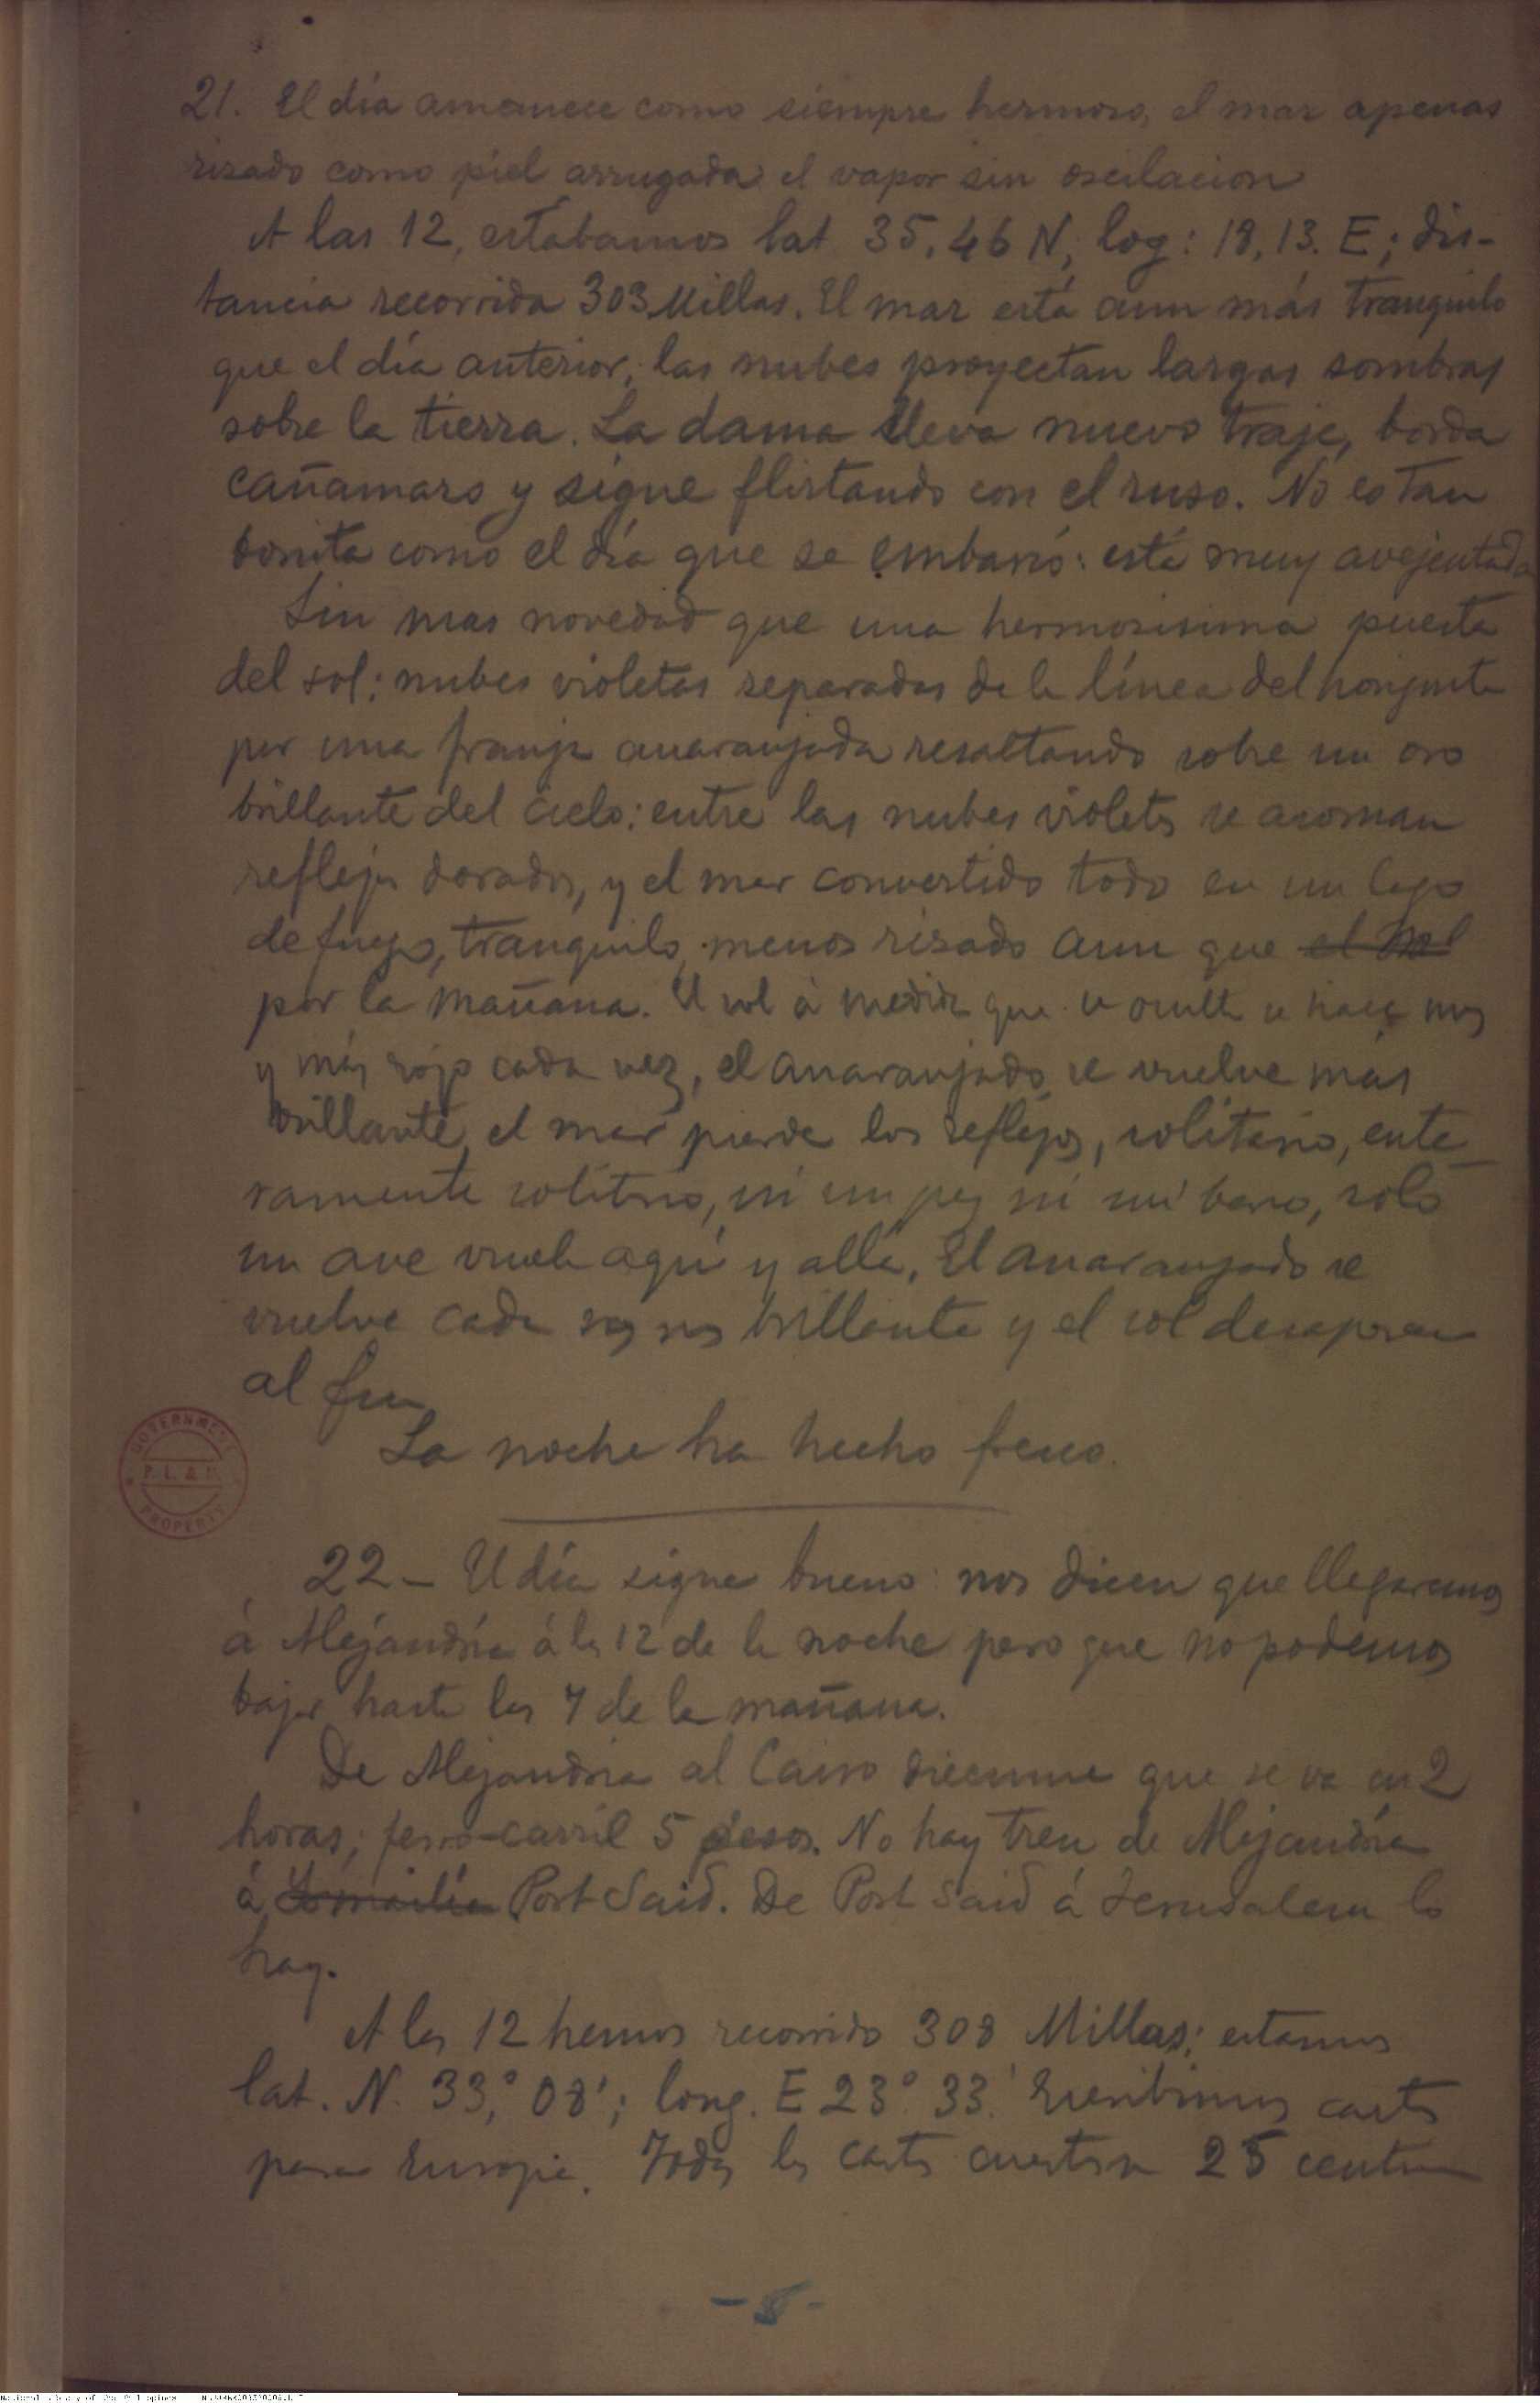 21. El día amanece como siempre hermoso, el mar apenas
risado como piel arrugada el vapor sin oscilacion
A las 12, estábamos lat 35,46 N, log: 18,13. E; dis-
tancia recorrida 303 Millas. El mar está aun más tranquilo
que el día anterior, las nubes proyectan largas sombras
sobre la tierra. La dama lleva nuevo traje, borda
cañamaro y sigue flirtando con el ruso. No es tan
bonita como el día que se embarcó: está muy avejentada
Sin mas novedad que una hermosisima puesta
del sol: nubes violetas separadas de la línea del horizonte
por una franja anaranjada resaltando sobre un oro
brillante del cielo: entre las nubes violets se asoman
reflejos dorados, y el mar convertido todo en un lago
de fuego, tranquilo, menos risado aun que el
por la mañana. El sol á medida que se oculta se hace mas
y más rojo cada vez, el anaranjado se vuelve más
brillante, el mar pierde los reflejos, solitario, ente
ramente solitario, ni un pez ni un barco, solo
un ave vuela aquí y allá. El anaranjado se
vuelve cada vez mas brillante y el sol desaparece
al fin
La noche ha hecho fresco.
22 - El día sigue bueno: nos dicen que llegaremos
á Alejandría á las 12 de la noche pero que no podemos
bajar hasta las 7 de la mañana.
De Alejandria al Cairo dicenme que se va en 2
horas; ferro-carril 5 pesos. No hay tren de Alejandría
á Ismailia Port Said. De Port Said á Jerusalem lo
hay.
A las 12 hemos recorrido 308 Millas; estamos
lat. N. 33,° 08'; long. E 23° 33.' Escribimos cartas
para Europa. Todas las cartas cuestan 25 centimos
GOVERNMENT
P. L. & M.
PROPERTY
National Library of the Philippines